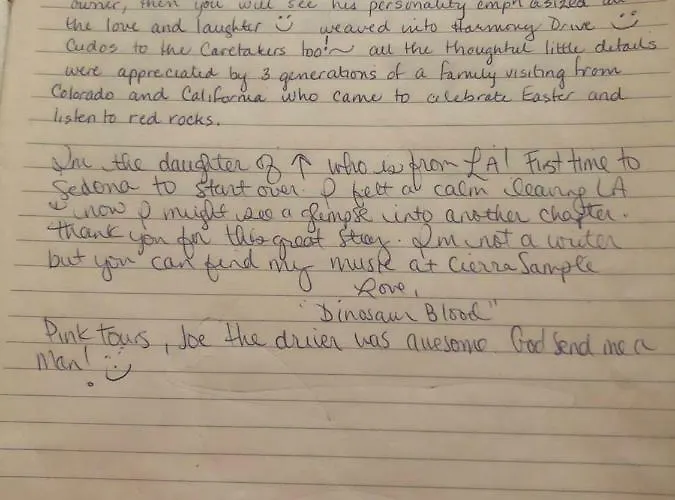 owner, then you will see his personality emphasized
the love and laughter :) weaved into Harmony Drive :)
Cudos to the Caretakers too! ~ all the thoughtful little details
were appreciated by 3 generations of a family visiting from
Colorado and California who came to celebrate Easter and
listen to red rocks.
I'm the daughter of ↑ who is from LA! First time to
Sedona to start over. I felt a calm leaving LA
& now I might see a glimpse into another chapter.
thank you for this great stay. I'm not a writer
but you can find my music at Cierra Sample
Love,
"Dinosaur Blood"
Pink Tours, Joe the driver was awesome. God send me a
Man! :)